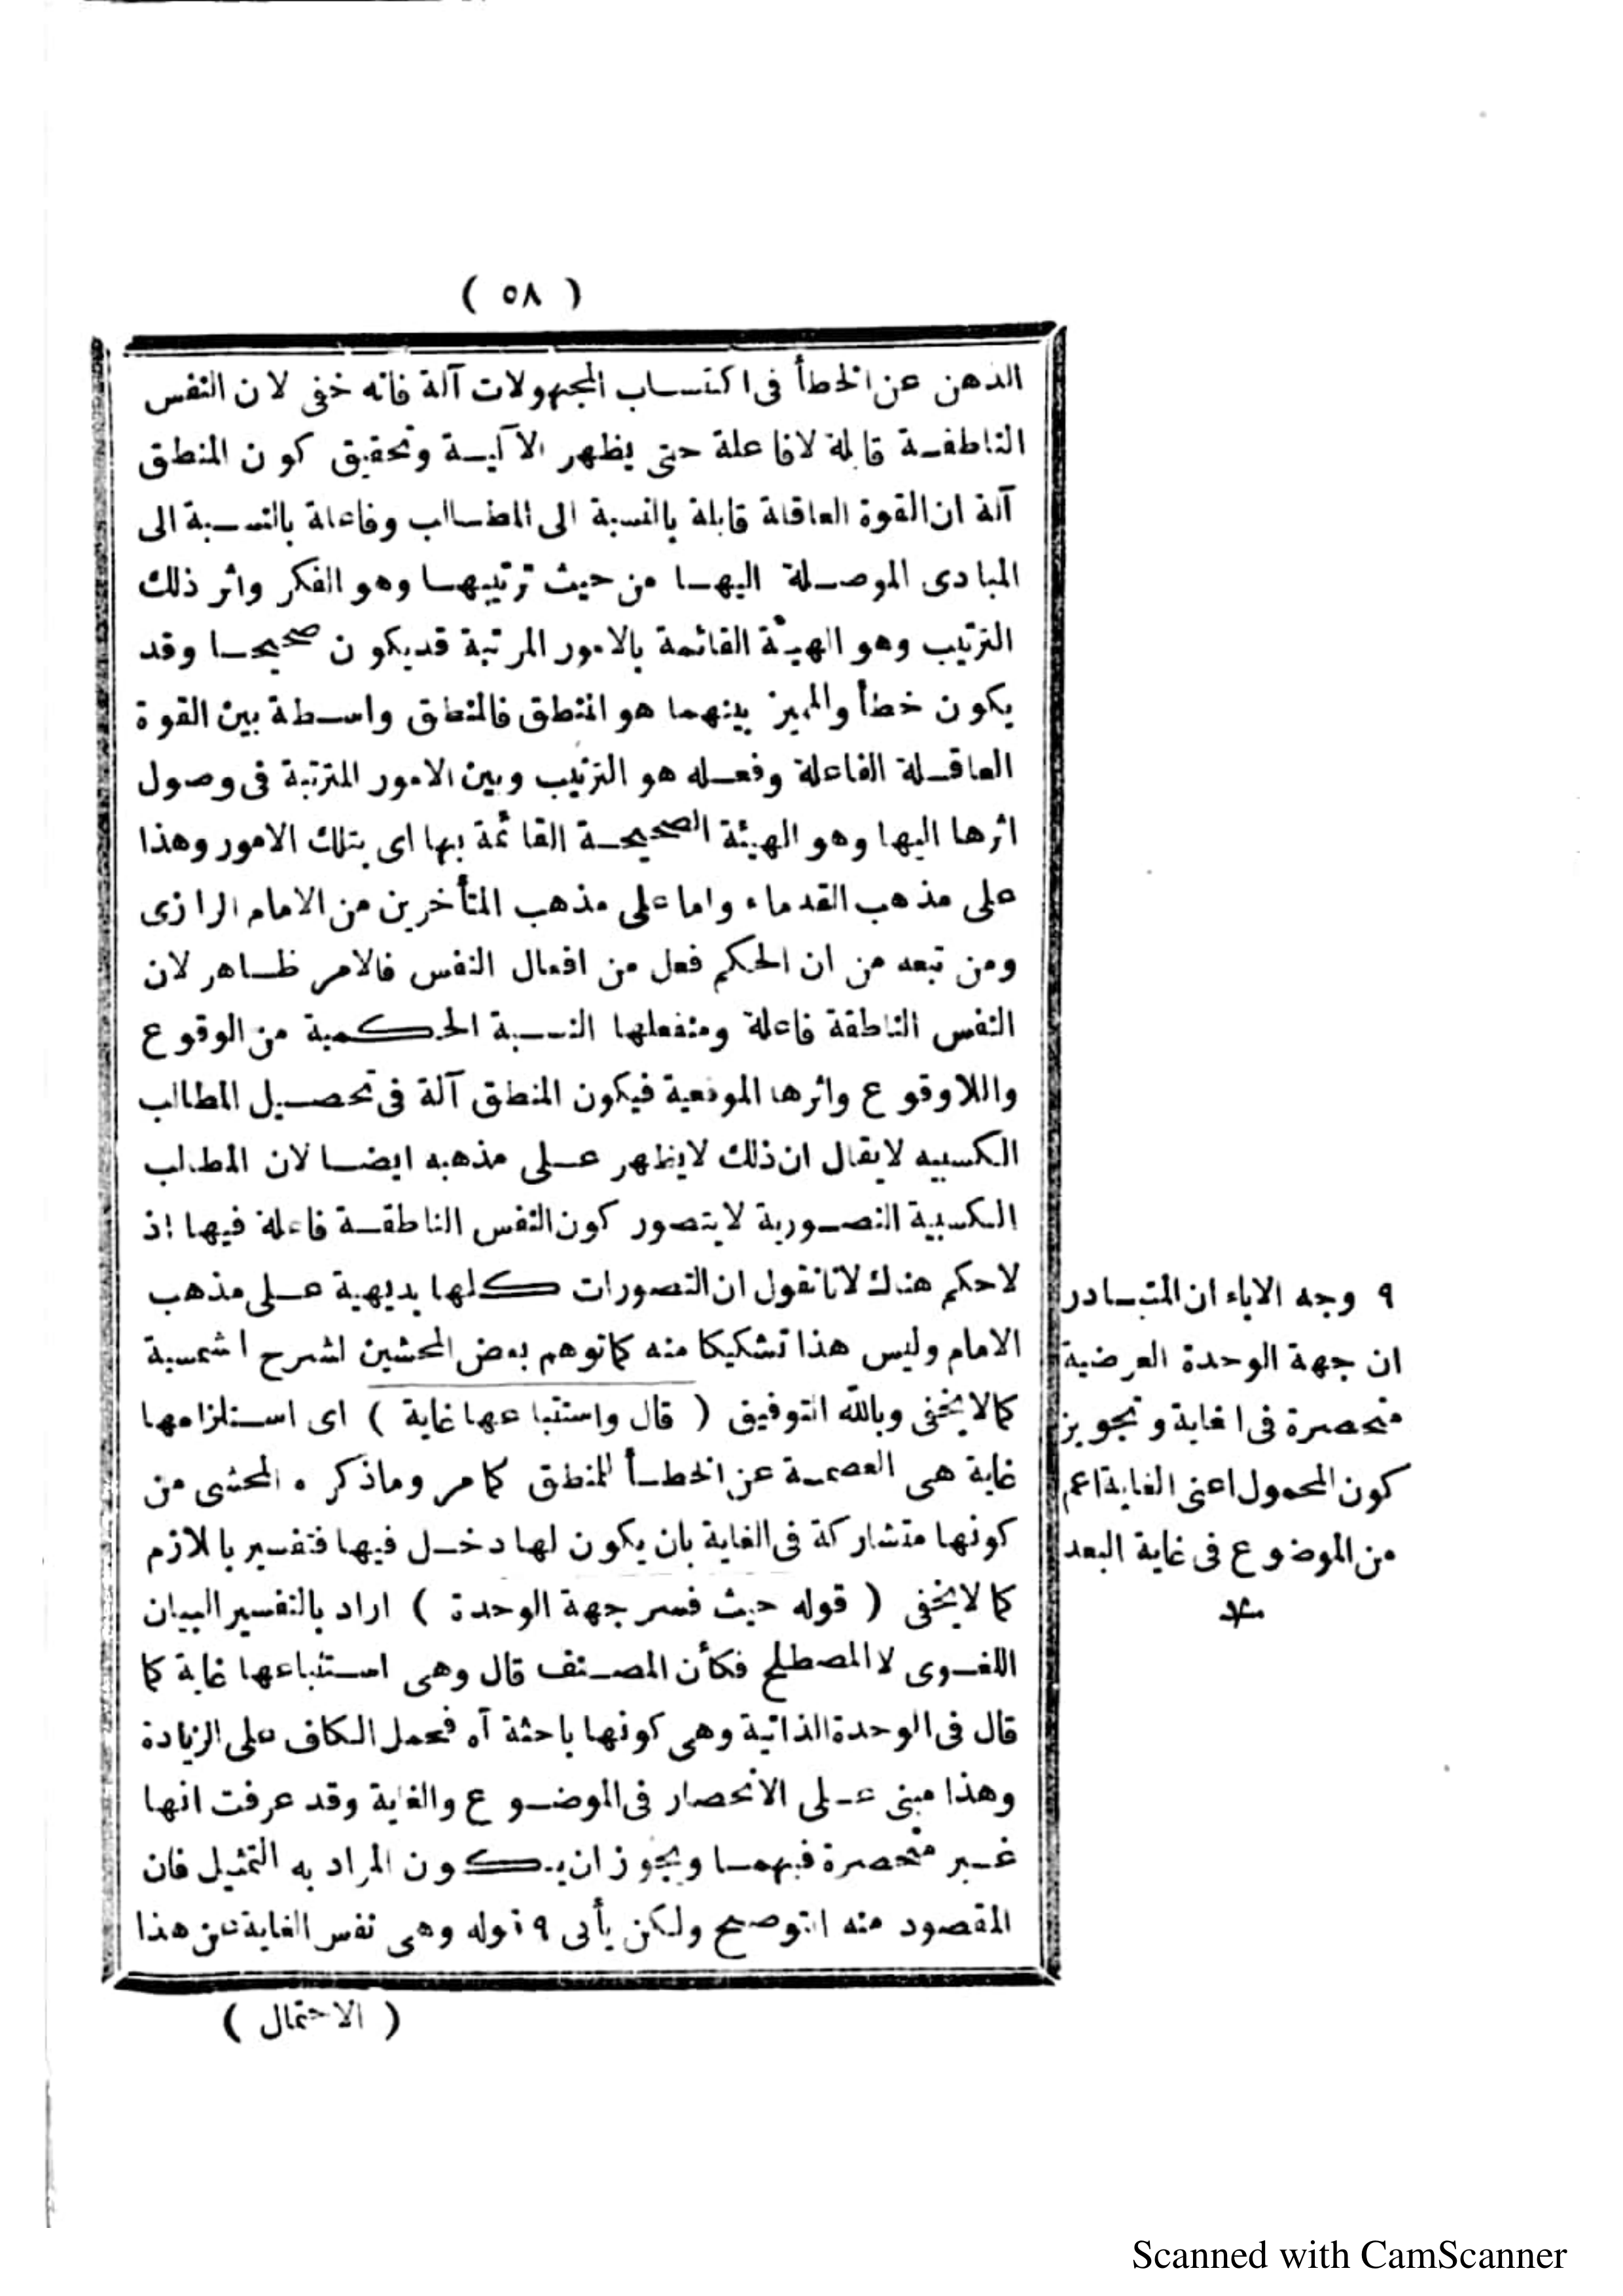 ( ٥٨ )
الذهن عن الخطأ فى اكتساب المجهولات آلة فانه خفى لان النفس
الناطقة قابلة لافاعلة حتى يظهر الآلية وتحقيق كون المنطق
آلة ان القوة العاقلة قابلة بالنسبة الى المطالب وفاعلة بالنسبة الى
المبادى الموصلة اليها من حيث ترتيبها وهو الفكر واثر ذلك
الترتيب وهو الهيئة القائمة بالامور المرتبة قديكون صحيحا وقد
يكون خطأ والمميز بينهما هو المنطق فالمنطق واسطة بين القوة
العاقلة الفاعلة وفعله هو الترتيب وبين الامور المترتبة فى وصول
اثرها اليها وهو الهيئة الصحيحة القائمة بها اى بتلك الامور وهذا
على مذهب القدماء واما على مذهب المتأخرين من الامام الرازى
ومن تبعه من ان الحكم فعل من افعال النفس فالامر ظاهر لان
النفس الناطقة فاعلة ومنفعلها النسبة الحكمية من الوقوع
واللاوقوع واثرها الموقعية فيكون المنطق آلة فى تحصيل المطالب
الكسبيه لايقال ان ذلك لايظهر على مذهبه ايضا لان المطلب
الكسبية التصورية لايتصور كون النفس الناطقة فاعلة فيها اذ
لاحكم هناك لانانقول ان التصورات كلها بديهية على مذهب
الامام وليس هذا تشكيكا منه كماتوهم بعض المحشين لشرح الشمسية
كمالايخفى وبالله التوفيق ( قال واستتباعها غاية ) اى استلزامها
غاية هى العصمة عن الخطأ للمنطق كمامر وماذكره المحشى من
كونها متشاركة فى الغاية بان يكون لها دخل فيها فتفسير باللازم
كمالايخفى ( قوله حيث فسر جهة الوحدة ) اراد بالتفسير البيان
اللغوى لاالمصطلح فكأن المصنف قال وهى استتباعها غاية كما
قال فى الوحدة الذاتية وهى كونها باحثة آه فحمل الكاف على الزيادة
وهذا مبنى على الانحصار فى الموضوع والغاية وقد عرفت انها
غير منحصرة فيهما ويجوز ان يكون المراد به التمثيل فان
المقصود منه التوضيح ولكن يأبى ٩ قوله وهى نفس الغاية عن هذا
( الاحتمال )
٩ وجه الاباء ان المتبادر
ان جهة الوحدة العرضية
منحصرة فى الغاية وتجويز
كون المحمول اعنى الغاية اعم
من الموضوع فى غاية البعد
Scanned with CamScanner